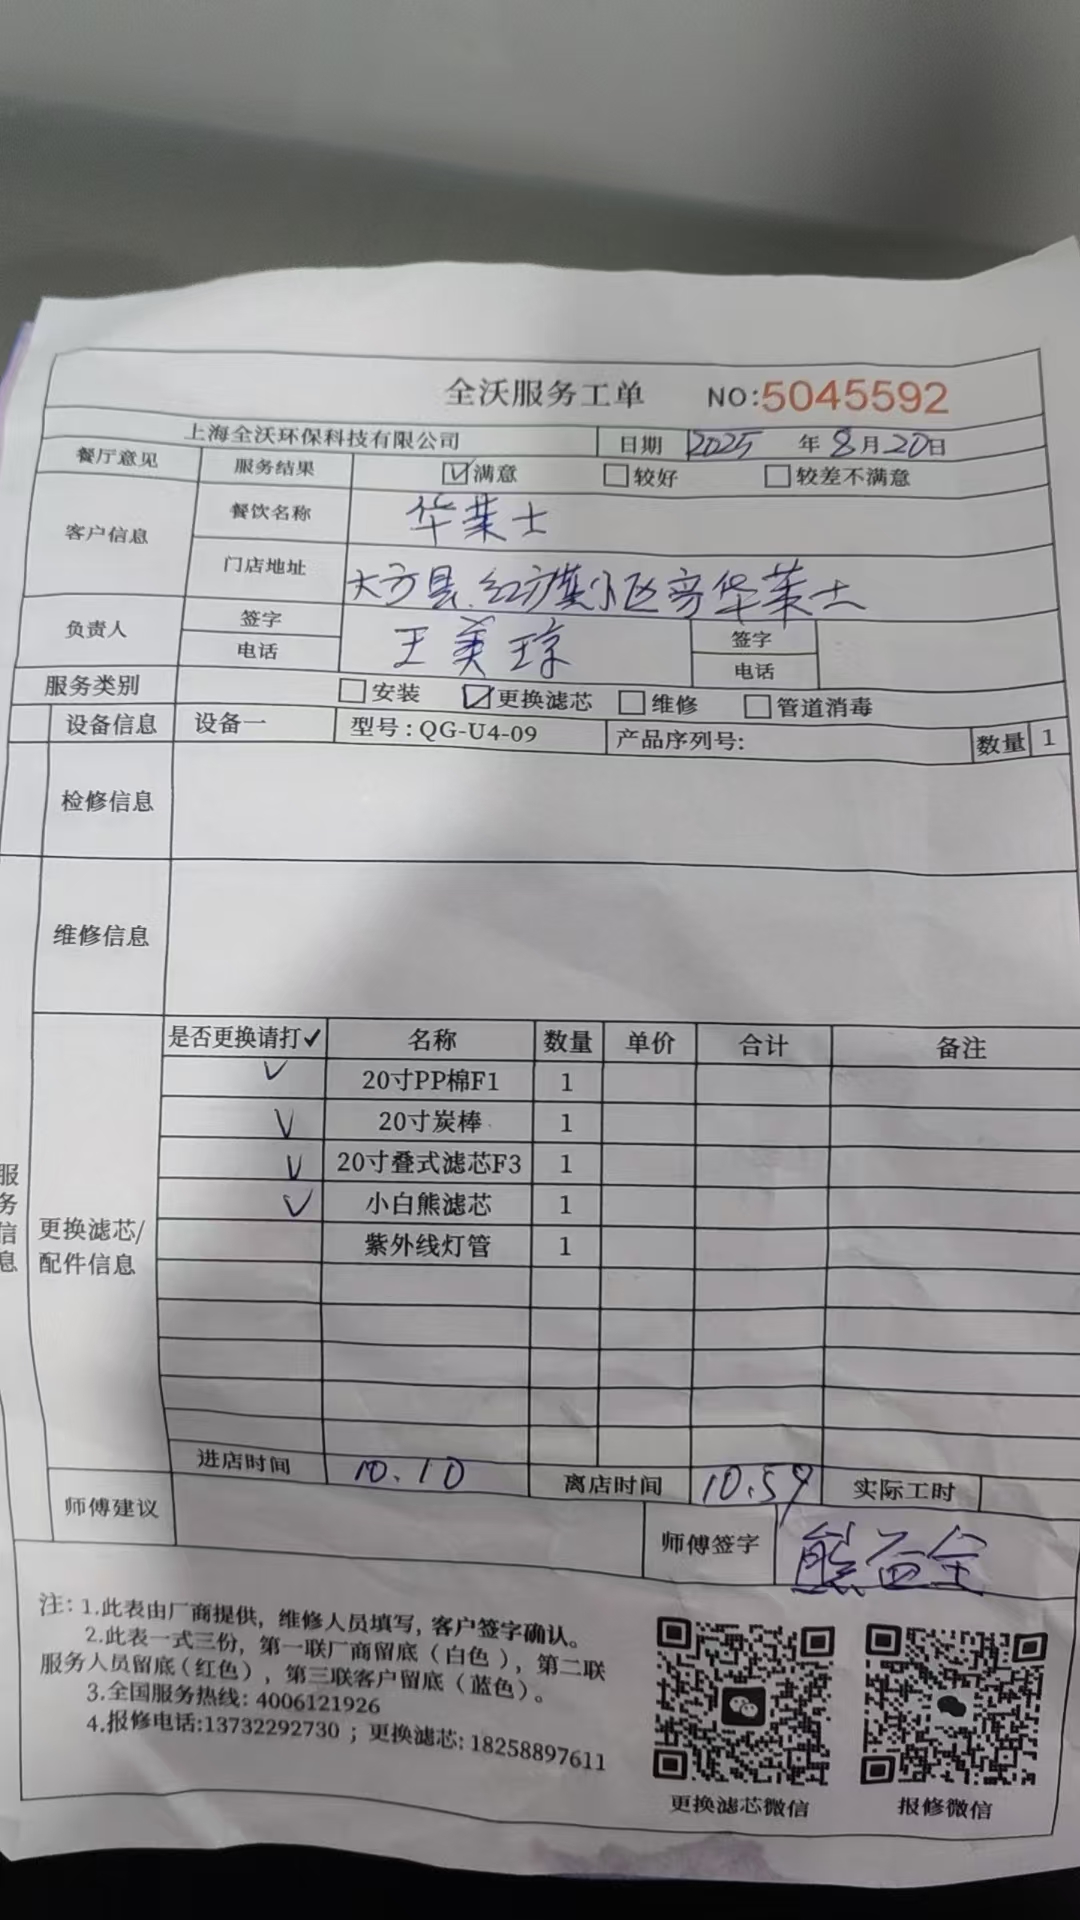 全沃服务工单 NO:5045592
上海全沃环保科技有限公司 日期 2025 年 8 月 20 日
餐厅意见 服务结果 满意 较好 较差不满意
客户信息 餐饮名称 华莱士
门店地址 大方县.红旗小区旁华莱士
负责人 签字 王美琼 签字
电话 电话
服务类别 安装 更换滤芯 维修 管道消毒
设备信息 设备一 型号:QG-U4-09 产品序列号: 数量 1
检修信息
维修信息
服务信息
更换滤芯/
配件信息
是否更换请打✓ 名称 数量 单价 合计 备注
✓ 20寸PP棉F1 1
✓ 20寸炭棒 1
✓ 20寸叠式滤芯F3 1
✓ 小白熊滤芯 1
紫外线灯管 1
进店时间 10.10 离店时间 10.59 实际工时
师傅建议 师傅签字 熊
注: 1.此表由厂商提供, 维修人员填写, 客户签字确认。
2.此表一式三份, 第一联厂商留底(白色), 第二联
服务人员留底(红色), 第三联客户留底(蓝色)。
3.全国服务热线: 4006121926
4.报修电话:13732292730 ; 更换滤芯: 18258897611
更换滤芯微信 报修微信